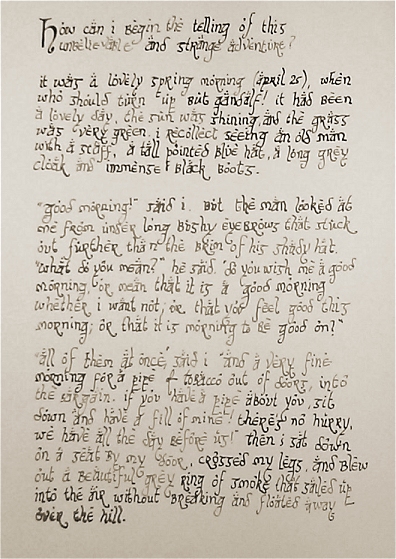 how can i begin the telling of this
unbelievable and strange adventure?
it was a lovely spring morning (april 25), when
who should turn up but gandalf! it had been
a lovely day, the sun was shining, and the grass
was very green. i recollect seeing an old man
with a staff, a tall pointed blue hat, a long grey
cloak and immense black boots.
"good morning!" said i. but the man looked at
me from under long bushy eyebrows that stuck
out further than the brim of his shady hat.
"what do you mean?" he said. do you wish me a good
morning, or mean that it is a good morning
whether i want not; or that you feel good this
morning; or that it is morning to be good on?"
"all of them at once, said i "and a very fine
morning for a pipe of tobacco out of doors, into
the bargain. if you have a pipe about you, sit
down and have a fill of mine! there's no hurry,
we have all the day before us!" then i sat down
on a seat by my door, crossed my legs, and blew
out a beautiful grey ring of smoke that sailed up
into the air without breaking and floated away
over the hill.